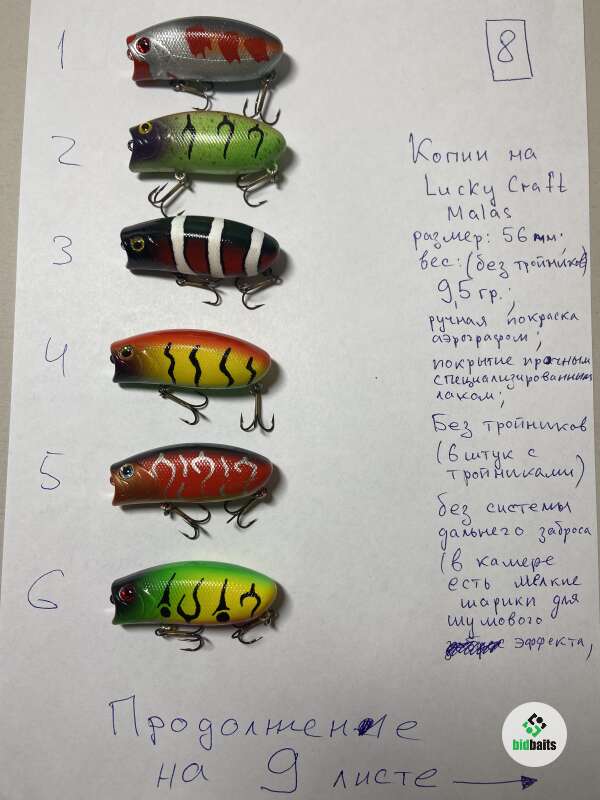 8
1
2
3
4
5
6
Копии на
Lucky Craft
Malas
размер: 56 мм.
вес: (без тройников)
9,5 гр.;
ручная покраска
аэрографом;
покрытие прочным
специализированным
лаком;
Без тройников
(6 штук с
тройниками)
без системы
дальнего заброса
(в камере
есть мелкие
шарики для
шумового
эффекта,
Продолжение
на 9 листе
bidbaits